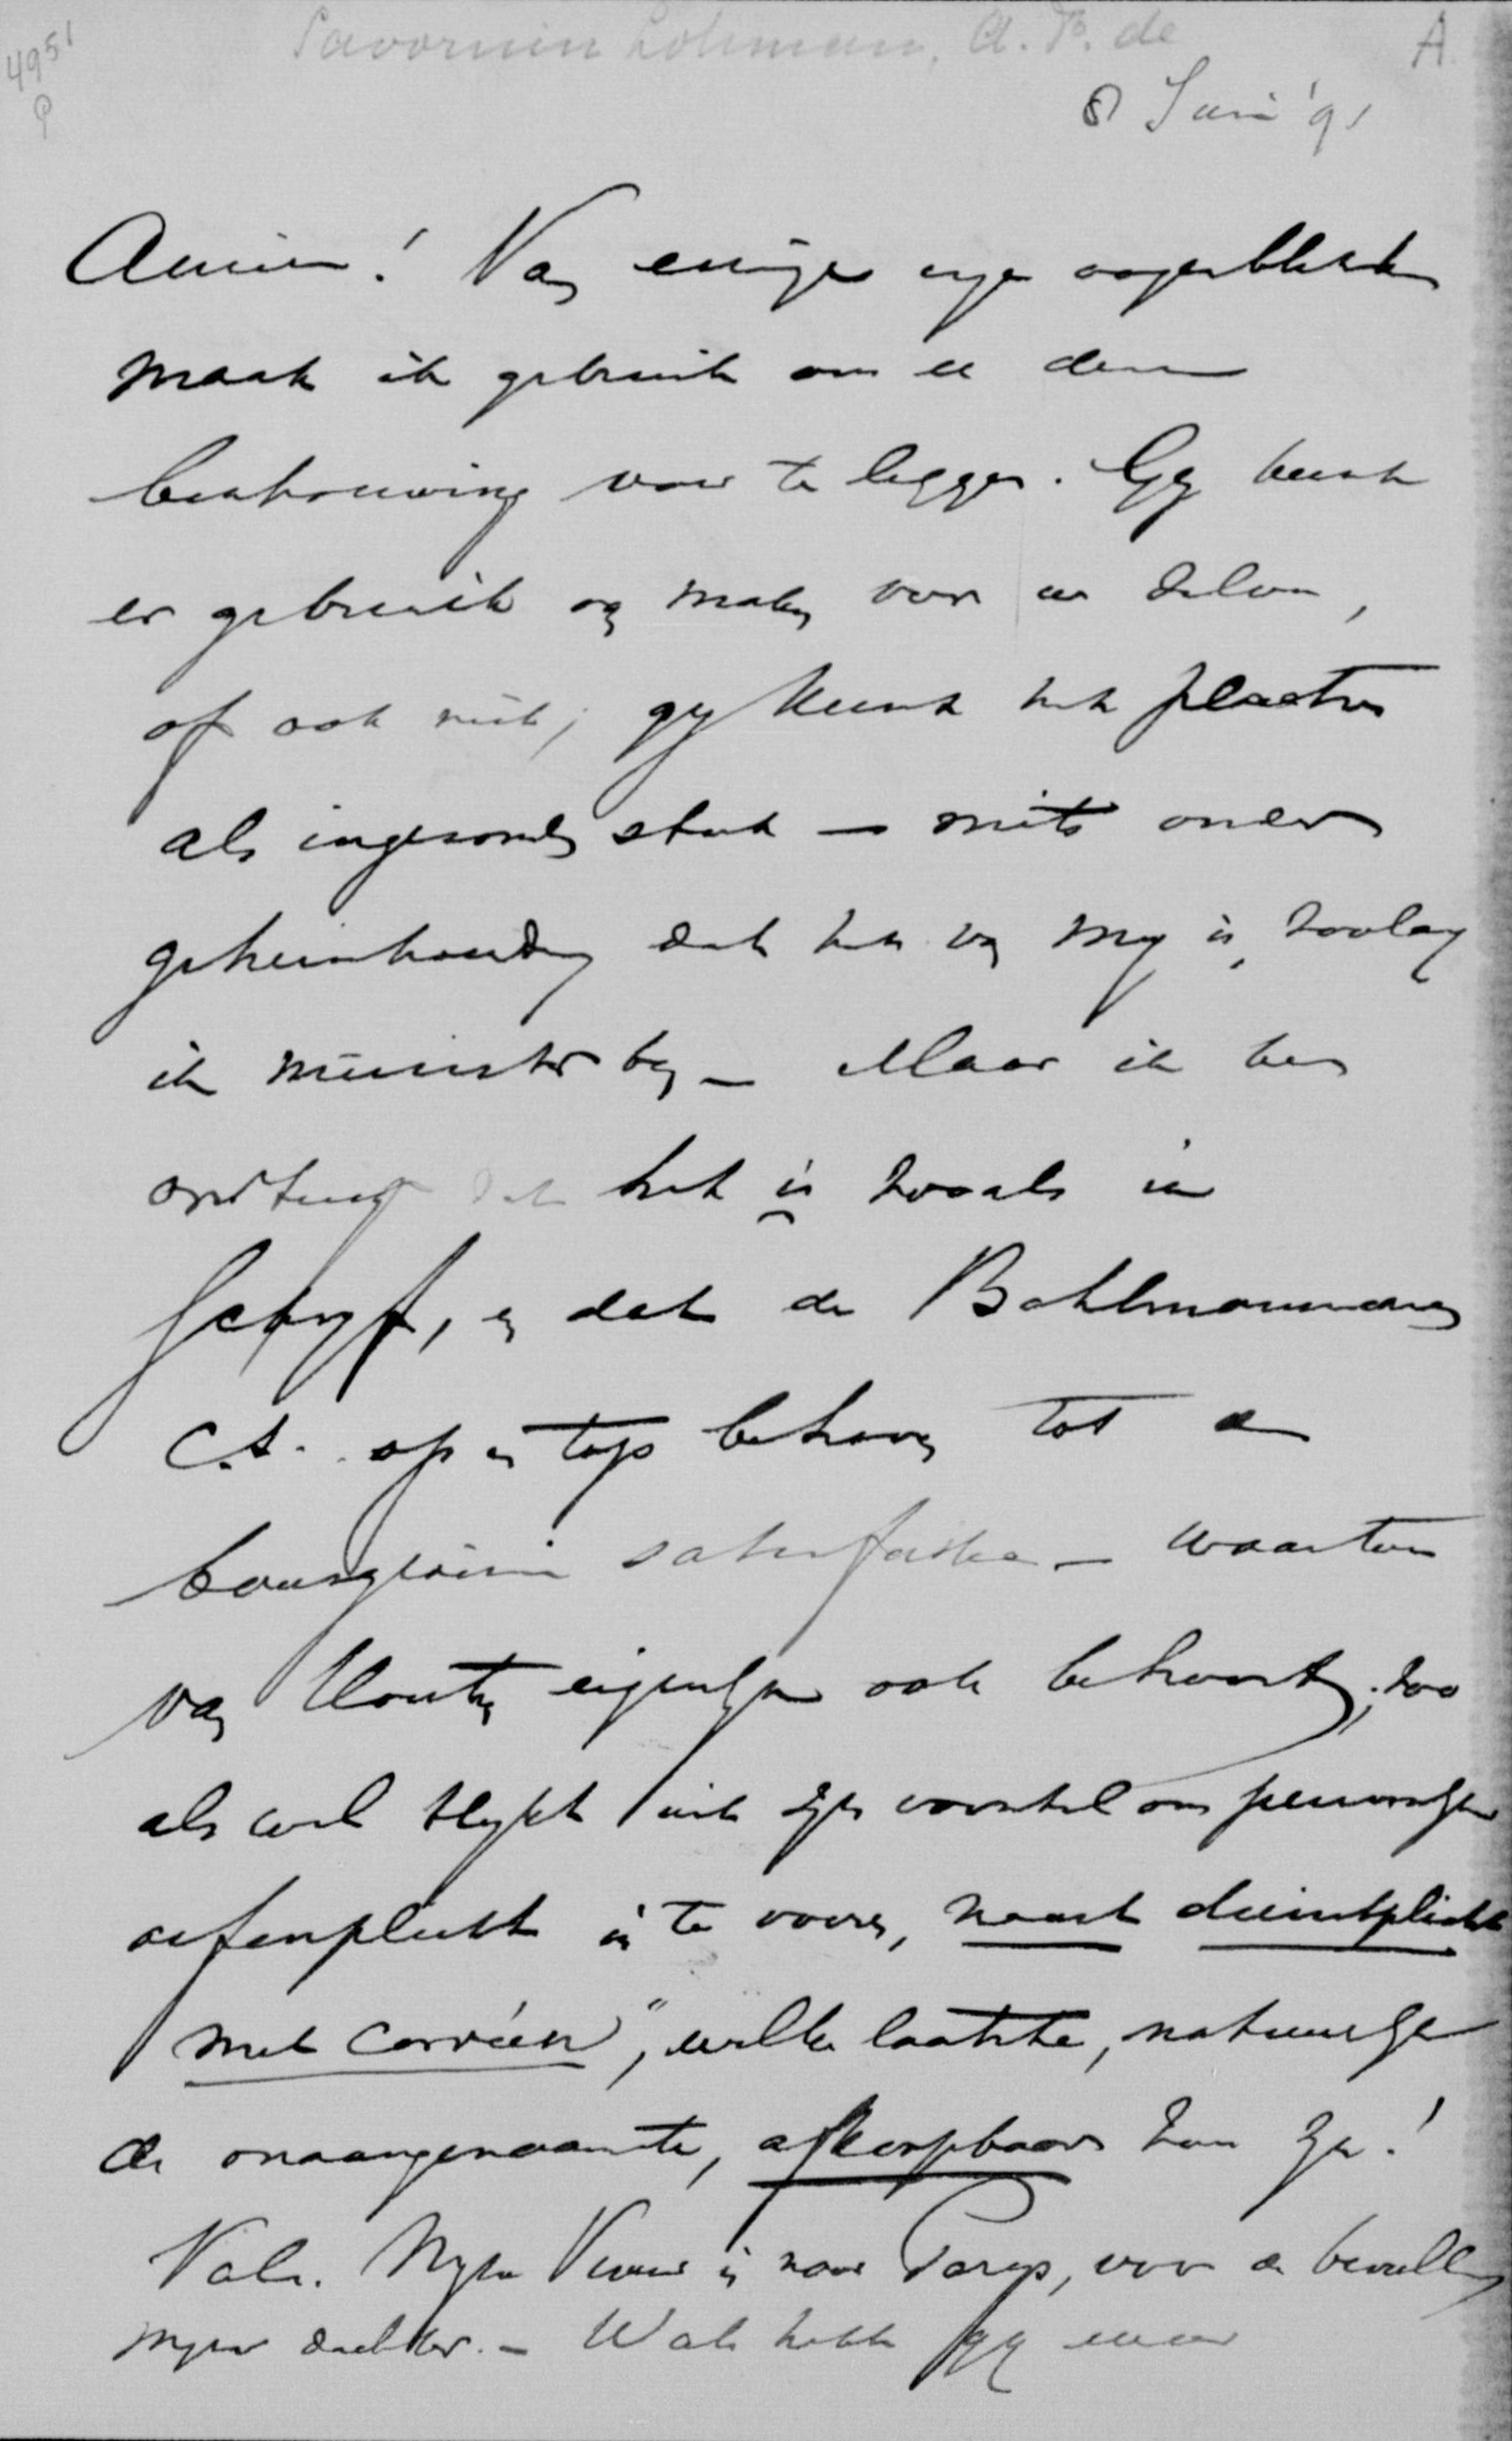 4951
Savornin Lohman, A. F. de
A
8 Juni '91
Amice! Van eenige vrije oogenblikken
maak ik gebruik om u deze
beschouwing voor te leggen. Gij kunt
er gebruik van maken voor
of ook niet; gij kunt het plaatsen
als ingezonden stuk – mits onder
geheimhouding dat het van mij is, zoolang
ik minister ben – Maar ik ben
overtuigd dat het is zooals ik
schrijf, en dat de Bahlmannianen
c.s. op en top behooren tot de
bourgeoisie satisfaite – waartoe
van Houten eigenlijk ook behoort; zoo
als wel blijkt uit zijn voorstel om persoonlijke
oefenplicht in te voeren, naast dienstplicht
met corvéen", welke laatste, natuurlijk
de onaangenaamste, afkoopbaar zou zijn!
Vale. Mijn Vrouw is naar Parijs, voor de bevalling
mijner dochter. – Wat hebt gij